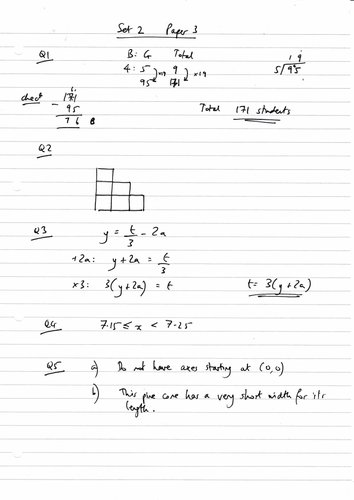 Set 2 Paper 3
Q1 B : G Total
4 : 5 9 ×19 ×19
95 171
19
5)95
check 171
- 95
76 B
Total 171 students
Q2
Q3 y = t/3 - 2a
+2a: y + 2a = t/3
×3: 3(y+2a) = t t = 3(y+2a)
Q4 7.15 ≤ x < 7.25
Q5 a) Do not have axes starting at (0,0)
b) This pine cone has a very short width for it's
length.